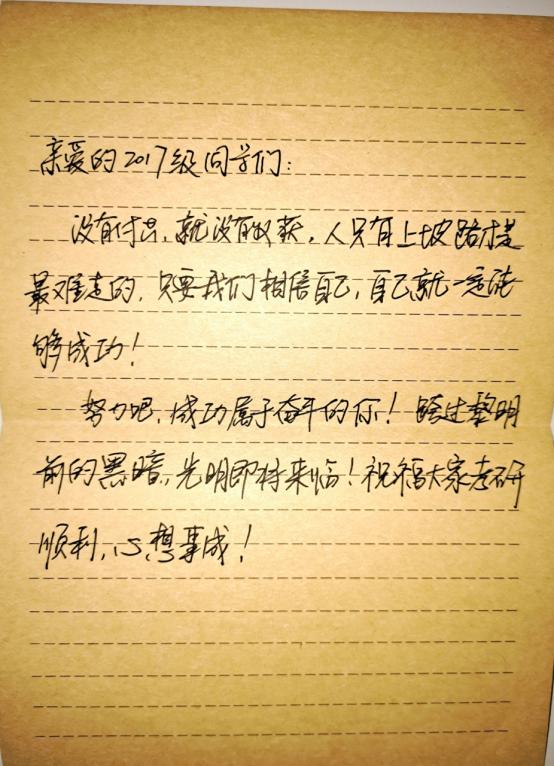 亲爱的2017级同学们:
没有付出,就没有收获,人只有上坡路才是
最难走的,只要我们相信自己,自己就一定能
够成功!
努力吧,成功属于奋斗的你!踏过黎明
前的黑暗,光明即将来临!祝福大家考研
顺利,心想事成!